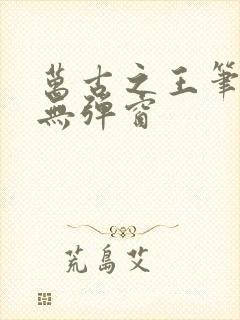 萬古之王筆
無彈窗
荒島艾